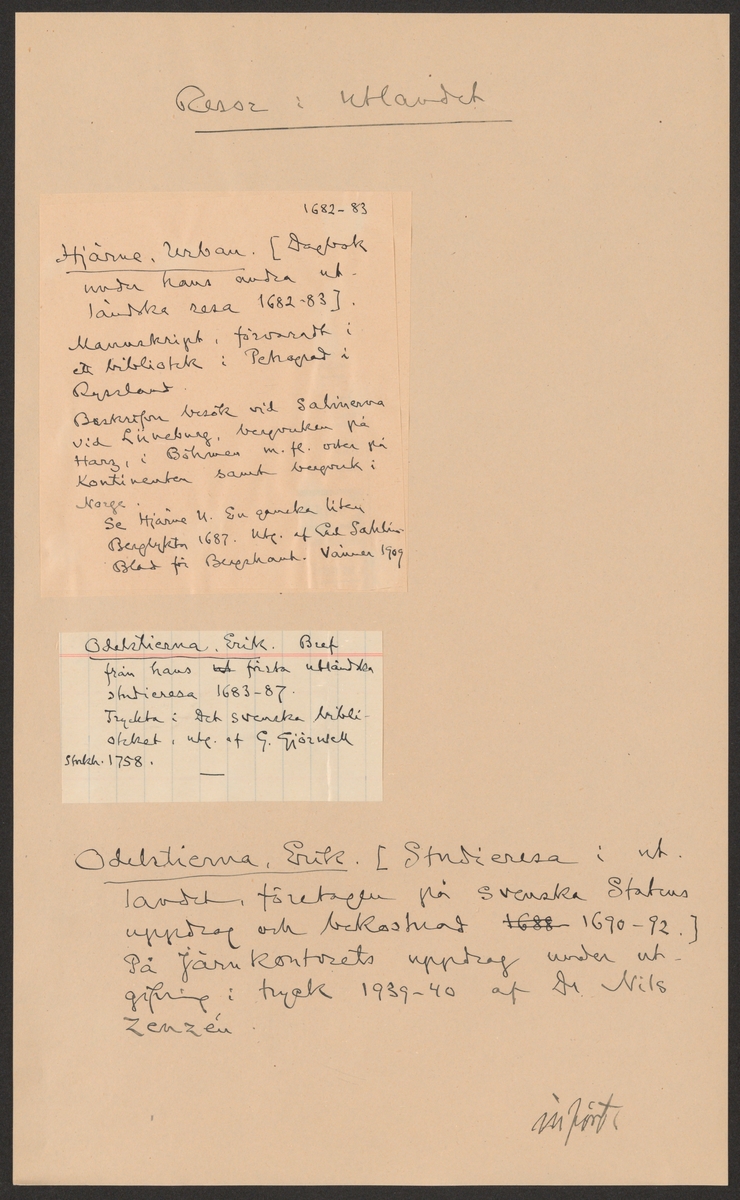 Resor i utlandet
1682-83
Hjärne, Urban. [Dagbok
under hans andra ut-
ländska resa 1682-83].
Manuskript, förvaradt i
ett bibliotek i Petrograd i
Ryssland.
Beskrifver besök vid Salinerna
vid Lüneburg, bergverken på
Harz, i Böhmen m. fl. orter på
Kontinenten samt bergverk i
Norge.
Se Hjärne U. En ganska liten
Berglykta 1687. Utg. af Carl Sahlin
Blad för Bergshant. Vänner 1909
Odelstierna, Erik. Bref
från hans ut första utländska
studieresa 1683-87.
Tryckta i Det svenska bibli-
oteket, utg. af G. Gjörwell
Stockh. 1758.
Odelstierna, Erik. [Studieresa i ut-
landet, företagen på svenska Statens
uppdrag och bekostnad 1688 1690-92.]
På Järnkontorets uppdrag under ut-
gifning i tryck 1939-40 af Dr. Nils
Zenzén.
införts